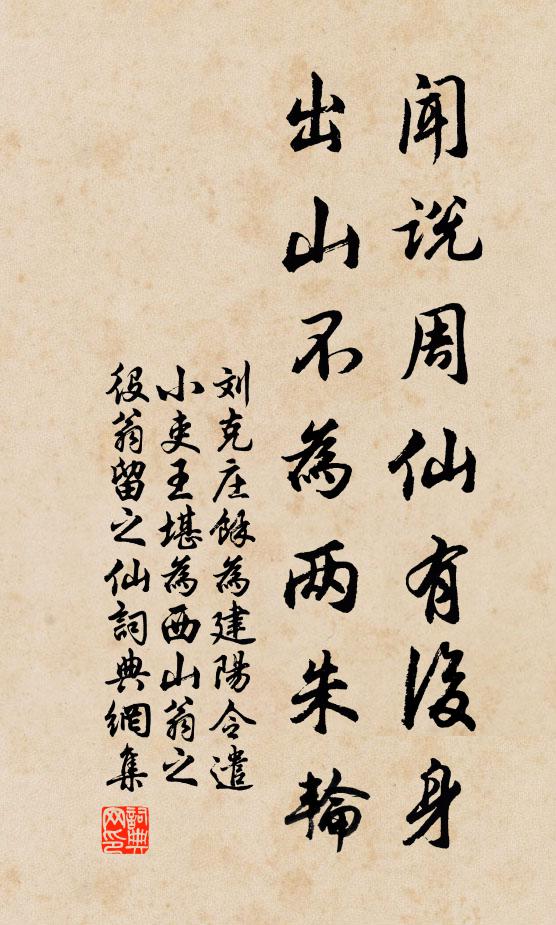 闻说周仙有後身
出山不為两朱輪
刘克庄餘為建陽令遣
小吏王堪為西山翁之
役翁留之仙詞典網集
詞典网印